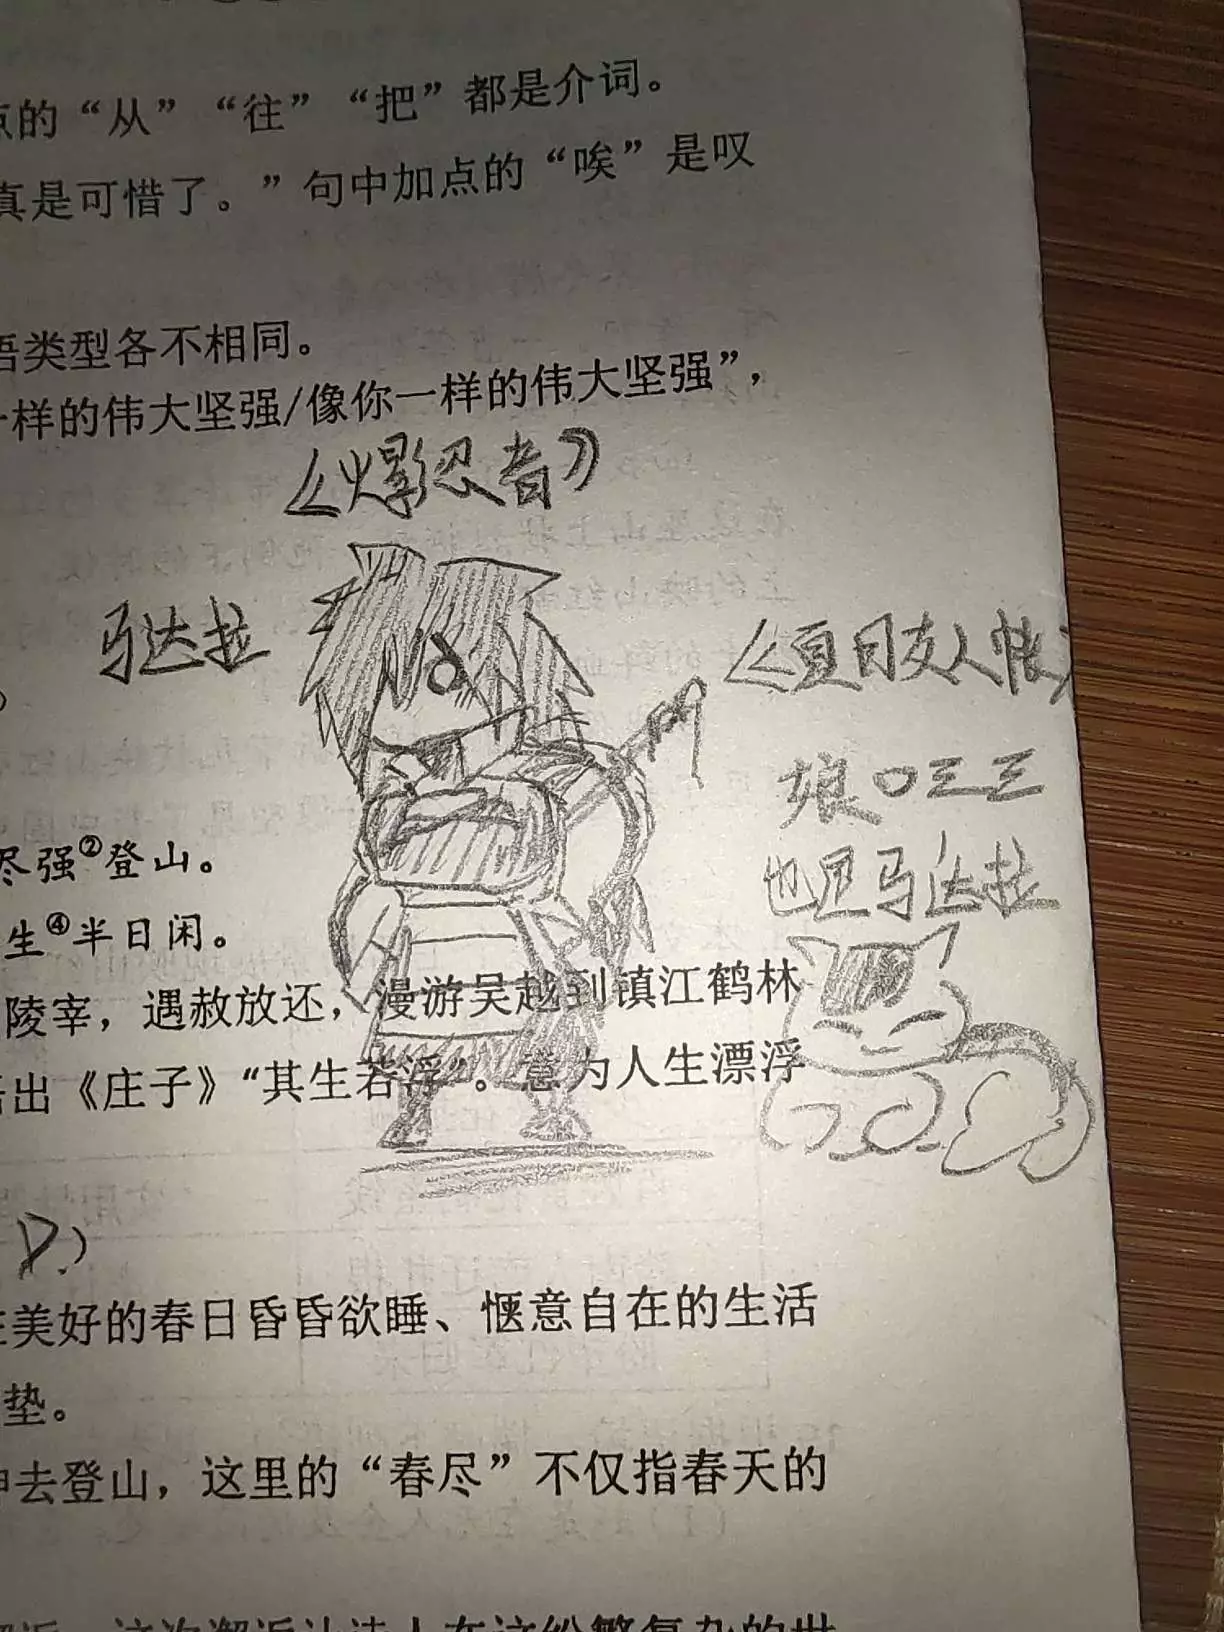 点的“从”“往”“把”都是介词。
真是可惜了。”句中加点的“唉”是叹
语类型各不相同。
一样的伟大坚强/像你一样的伟大坚强”，
《爆忍者》
马达拉
《夏目友人帐》
娘口三三
也是马达拉
尽强②登山。
生④半日闲。
陵宰，遇赦放还，漫游吴越到镇江鹤林
出《庄子》“其生若浮”。意为人生漂浮
D.）
美好的春日昏昏欲睡、惬意自在的生活
垫。
去登山，这里的“春尽”不仅指春天的
邂逅，这次邂逅让诗人在这纷繁复杂的世